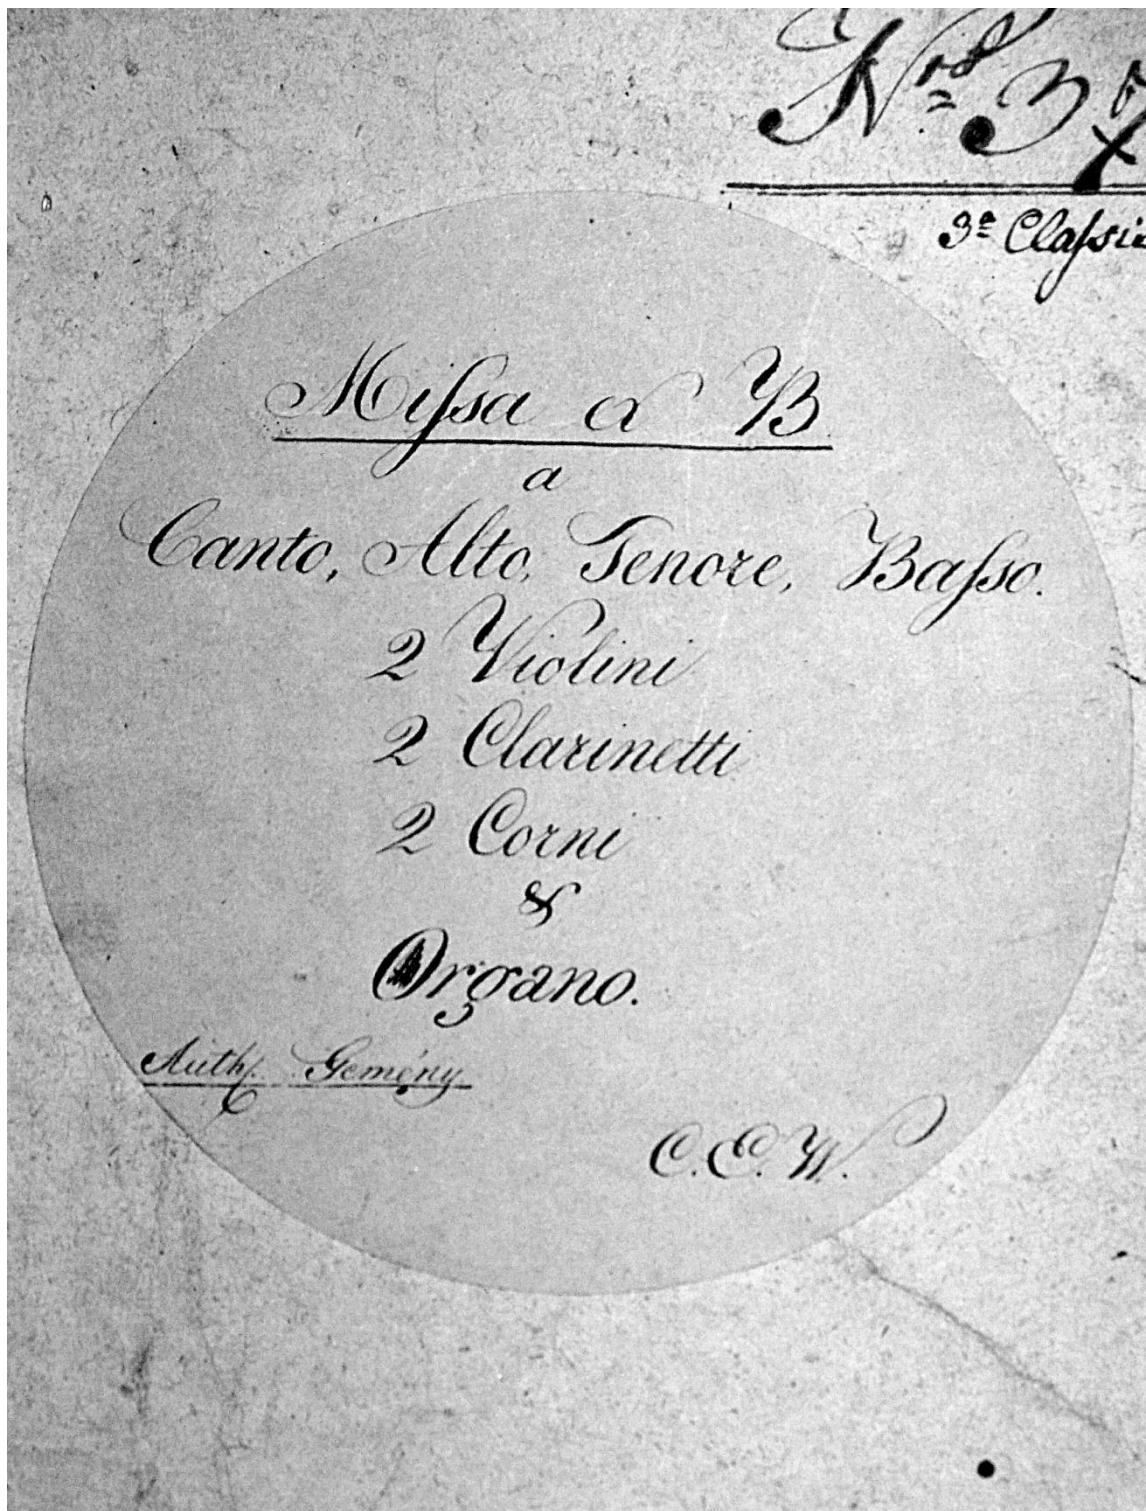 Nro 3
3e Classis
Missa ex B
a
Canto, Alto, Tenore, Basso.
2 Violini
2 Clarinetti
2 Corni
&
Organo.
Auth. Gemény
C. E. W.